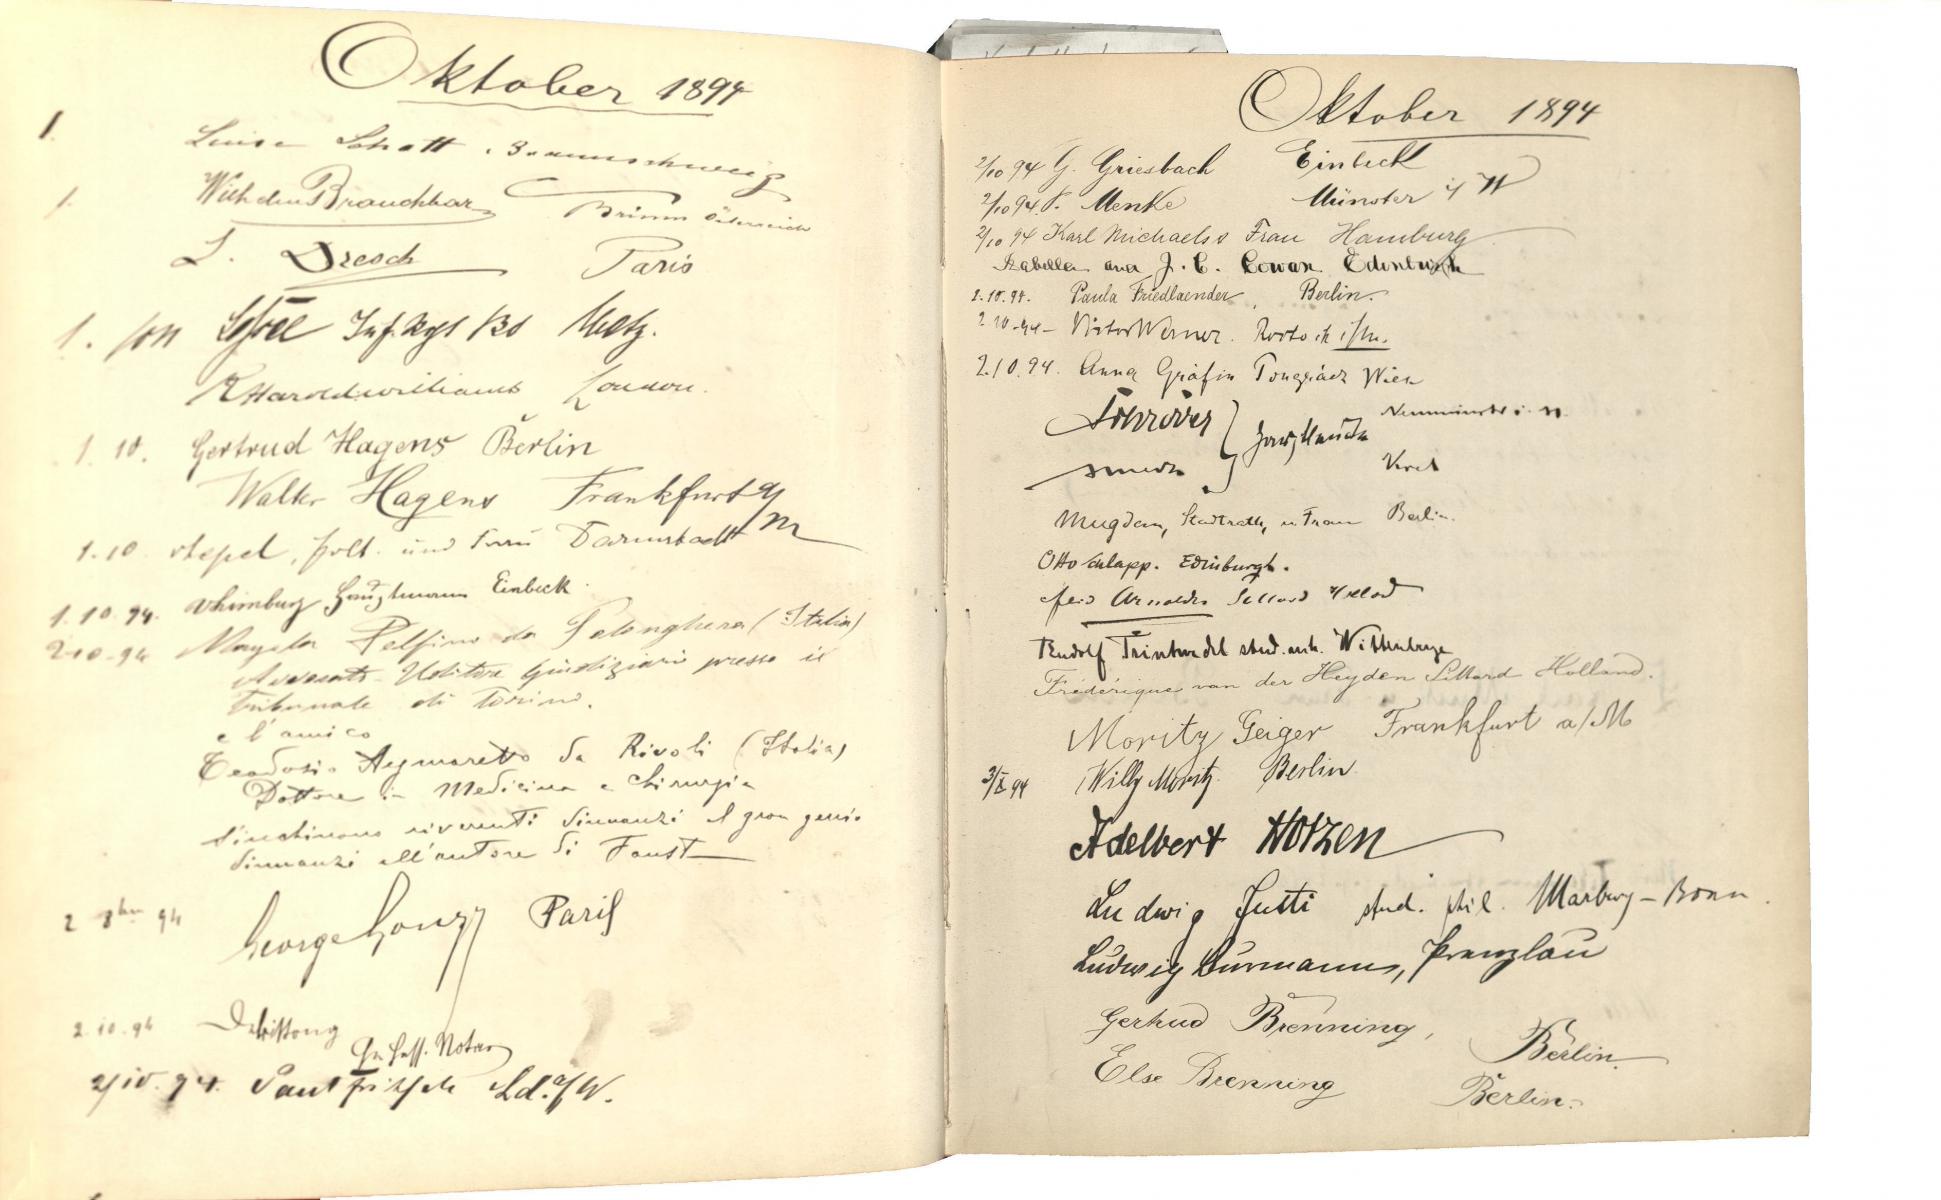 Oktober 1894
1.
Luise Schott, Braunschweig
1. Wilhelm Brauchbar Brünn Österreich
L. Dresch Paris
1. Inf. Rgt 130 Metz.
Haroldwilliams London.
1. 10. Gertrud Hagens Berlin
Walter Hagens Frankfurt a/M
1.10 Stapel, und Frau Darmstadt
1.10.94. Hauptmann Einbeck.
2-10-94 Delfino da (Italia)
Avvocato - Uditore Giudiziario presso il
Tribunale di Torino.
e l'amico
Teodosio Aymaretto da Rivoli (Italia)
Dottore in Medicina e Chirurgia
s'inchinano riverenti dinnanzi al gran genio
dinnanzi all'autore di Faust
2 8bre 94 George Paris
2.10.94
Gr. Hess. Notar
2/10.94. Paul Fritsche Ld. a/W.
Oktober 1894
2/10 94 G. Griesbach Einbeck
2/10 94. Menke Münster i/W
2/10 94 Karl Michaels u Frau Hamburg
Isabella and J. C. Cowan Edinburgh
2.10.94. Paula Friedlaender, Berlin.
2 10-94- Victor Werner. Rostock i/M.
2.10.94. Anna Gräfin Pongrácz Wien
Schröder } Neumünster i. H.
Kiel
Mugdan, Stadtrath, u. Frau Berlin.
Otto Schlapp. Edinburgh.
Arnoldts Sittard Holland
Rudolf Wittenberge
Frédérique van der Heyden Sittard Holland.
Moritz Geiger Frankfurt a/M
3/X 94 Willy Moritz. Berlin
Adelbert Hotzen
Ludwig Jutti stud. phil. Marburg - Bonn.
Ludwig Burmann, Prenzlau
Gertrud Brenning, Berlin.
Else Brenning Berlin.